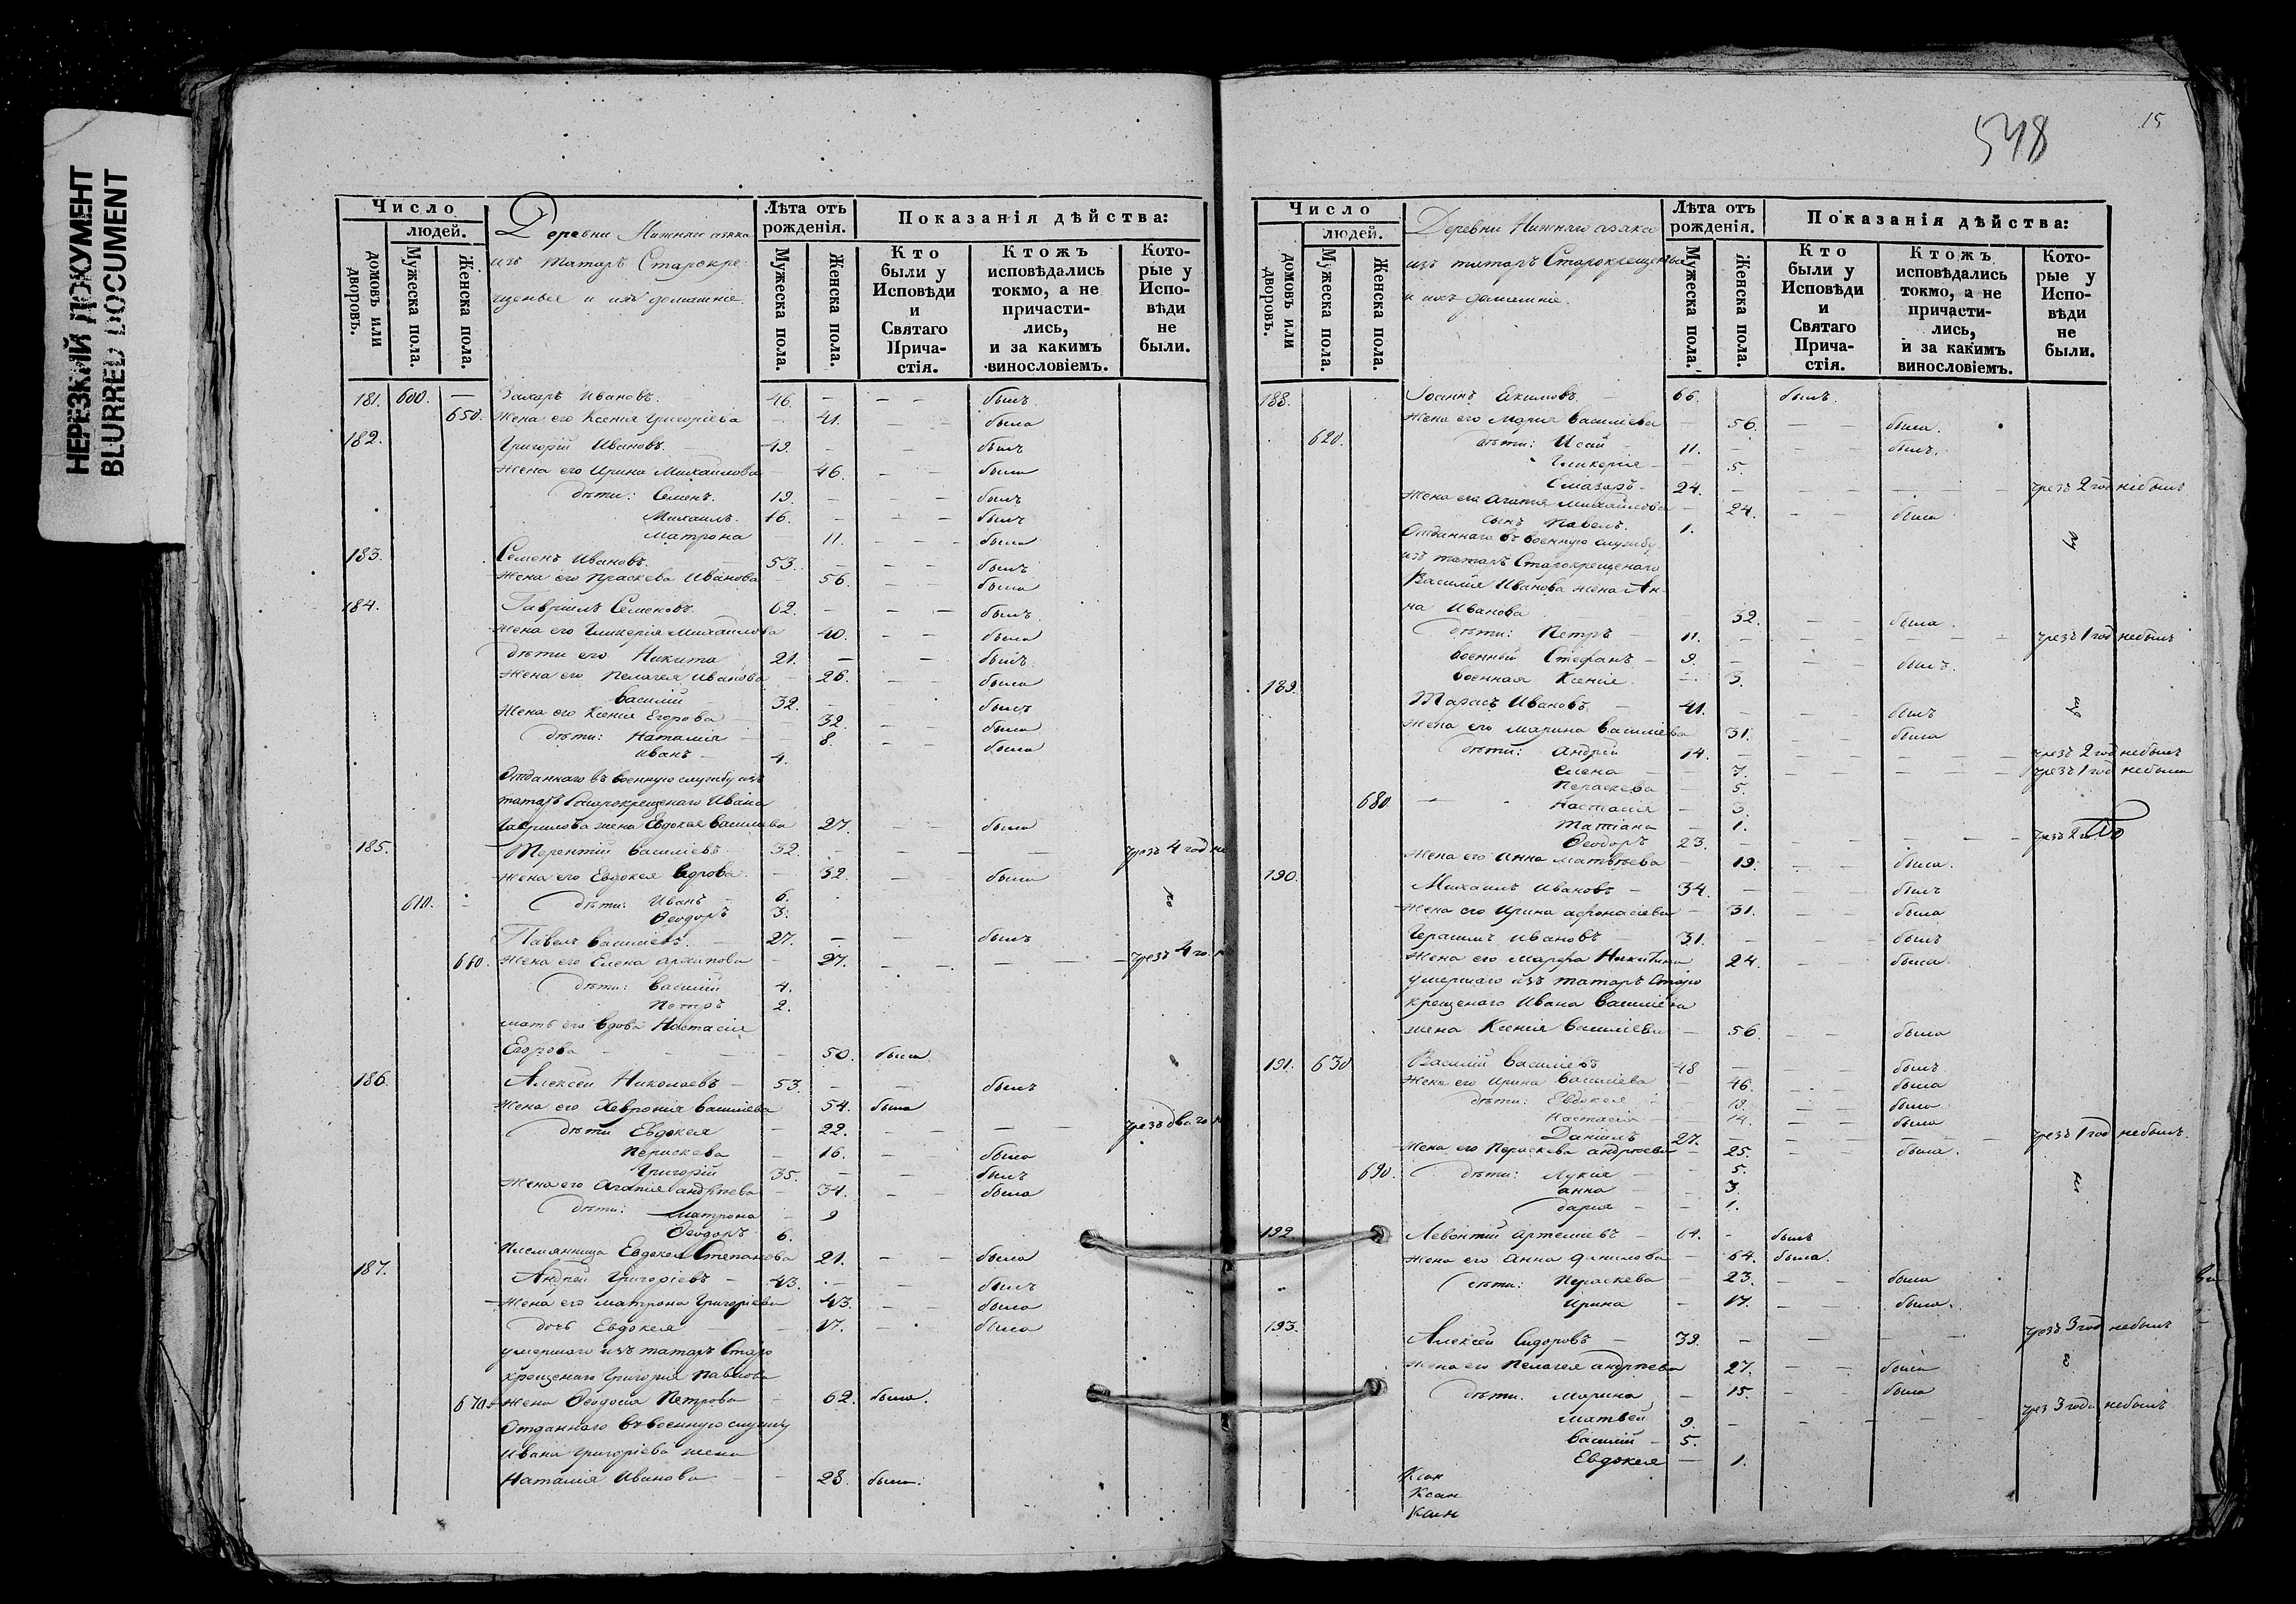 НЕРЕЗКИЙ ДОКУМЕНТ
BLURRED DOCUMENT
Число
людей.
домовъ или дворовъ.
Мужеска пола.
Женска пола.
Деревни Нижняго азяка
изъ татаръ Старокре-
щеные и ихъ домашніе
Лѣта отъ рожденія.
Мужеска пола.
Женска пола.
Показанія дѣйства:
Кто были у Исповѣди и Святаго Прича-стія.
Ктожъ исповѣдались токмо, а не причасти-лись, и за какимъ винословіемъ.
Кото-рые у Испо-вѣди не были.
181. 600. — Захаръ Ивановъ. 46. — — — былъ
650. Жена его Ксенія Григоріева — 41. — — была
182. Григорій Ивановъ. 49. — — былъ
Жена его Ирина Михаилова 46. — — была
дѣти: Семенъ. 19. — — — былъ
Михаилъ. 16. — — — былъ
Матрона — 11. — — была
183. Семенъ Ивановъ. 53. — — — былъ
Жена его Праскева Иванова — 56. — — была
184. Гавріилъ Семеновъ. 62. — — — былъ.
Жена его Гликерія Михаилова 40. — — была
дѣти его Никита 21. — — былъ.
Жена его Пелагея Иванова — 26. — — была
Василій 32. — — — былъ
Жена его Ксенія Егорова — 32. — — была
дѣти: Наталія — — 8. — — была
Иванъ — 4.
Отданнаго въ военную службу изъ
татаръ Старокрещенаго Ивана
Гаврилова жена Евдокея Василева 27. — — была
185. Терентій Василіевъ 32. — — — — чрезъ 4 год не
Жена его Евдокея — 32. — была
610. — дѣти: Иванъ — 6.
Ѳеодоръ 3.
Павелъ Василіевъ. — 27. — — былъ
660. Жена его Елена архипова — 27. — — — — — чрезъ 4 го. н
дѣти: Василій 4.
Петръ 2.
мать его вдова Настасія
Егорова — — — — 50. была.
186. Алексей Николаевъ — 53. — — былъ
Жена его Хевронія Василіева 54. была
дѣти Евдокея — 22. — — — — чрезъ два го н
Пераскева — 16. — — была
Григорій 35. — — былъ
Жена его Агапія андрѣева — 34. — — была
дѣти: Матрона — 9
Ѳеодоръ 6.
Племянница Евдокея Степанова 21. — — была
187. Андрей Григоріевъ — 43. — — былъ
Жена его матрона Григоріева 43. — — была
дочь Евдокея — — 17. — была
умершаго изъ татаръ Старо
крещенаго Григорія Павлова
670. Жена Ѳеодосія Петрова — 62. была.
Отданнаго въ военную службу
Ивана Григоріева жена
Наталія Иванова — — 28. была.
548
15
Число
людей.
домовъ или дворовъ.
Мужеска пола.
Женска пола.
Деревни Нижняго азяка
изъ татаръ Старокрещеные
и ихъ домашніе.
Лѣта отъ рожденія.
Мужеска пола.
Женска пола.
Показанія дѣйства:
Кто были у Исповѣди и Святаго Прича-стія.
Ктожъ исповѣдались токмо, а не причасти-лись, и за какимъ винословіемъ.
Кото-рые у Испо-вѣди не были.
188. Іоаннъ Екимовъ. 66. былъ.
Жена его Марія Василіева — 56. — — была.
620. дѣти: Исай 11. — — — былъ.
Гликерія — — 5.
Елазаръ — 24. — — — — — чрезъ 2 год небылъ
Жена его Агапія Михаилова — 24. — — была
сынъ Павелъ. 1.
Отданнаго въ военную службу
изъ татаръ Старокрещенаго
Василія Иванова жена Ан-
на Иванова 32. — — была.
дѣти: Петръ — 11. — — — — чрезъ 1 год небылъ
военный Стефанъ — 9. — — — былъ.
военная Ксенія. — 3.
189. Тарасъ Ивановъ. — 41. — — — былъ
Жена его Марина Василіева 31. — — была
дѣти: Андрей 14. — — — — — чрезъ 2 год небылъ
Елена — — 7. — — — — — чрезъ 1 год небыла
Пераскева — 5.
680. — Настасія — 3.
Татіана — 1.
Ѳеодоръ 23. — — — — — чрезъ 2
Жена его Анна Матвѣева — 19. — — была.
190. Михаилъ Ивановъ — 34. — — — былъ
Жена его Ирина афонасіева — 31. — — была
Герасимъ Ивановъ — 31. — — — былъ
Жена его Марфа Никитина — 24. — была.
умершаго изъ татаръ Старо
крещенаго Ивана Василіева
жена Ксенія Василіева — 56. — — была
191. 630 Василій Василіевъ 48 — — — былъ
Жена его Ирина Василіева — 46. — — была
дѣти: Евдокея — 19. — — была
Настасія — — 14. — — была
Даніилъ 27. — — — — — чрезъ 1 год небылъ.
Жена его Пераскева андрѣева — 25. — — была.
690. дѣти: Лукия — — 5.
анна — — 3.
дарья — — 1.
192. Левонтій Артеміевъ — 64. — былъ
Жена его Анна Данилова — 64. была.
дѣти: Пераскева — 23. — — была
Ирина — 17. — — была.
193. Алексей Сидоровъ — 39. — — — — чрезъ 3 год небылъ
Жена его Пелагея андрѣева 27. — — была
дѣти: Марина — 15 — — была
Матвей 9. — — — — — чрез 3 года небылъ
Василій — 5.
Евдокея — 1.
Ксан
Ксан
Ксан